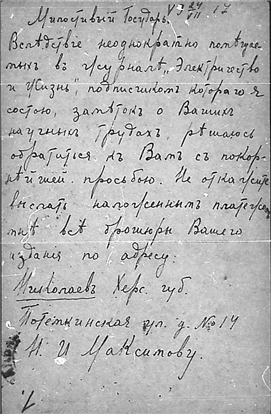 Милостивый Государь,
Вслѣдствіе неоднократно помѣщае
мыхъ въ журналѣ „Электричество
и Жизнь", подписчикомъ котораго я
состою, замѣтокъ о Вашихъ
научныхъ трудахъ, рѣшаюсь
обратиться къ Вамъ съ покор-
нѣйшей просьбою. Не откажите
выслать наложеннымъ платеже
мъ всѣ брошюры Вашего
изданія по адресу:
Николаевъ Херс. губ.
Потемкинская ул. д. № 14
Н. И Максимову.